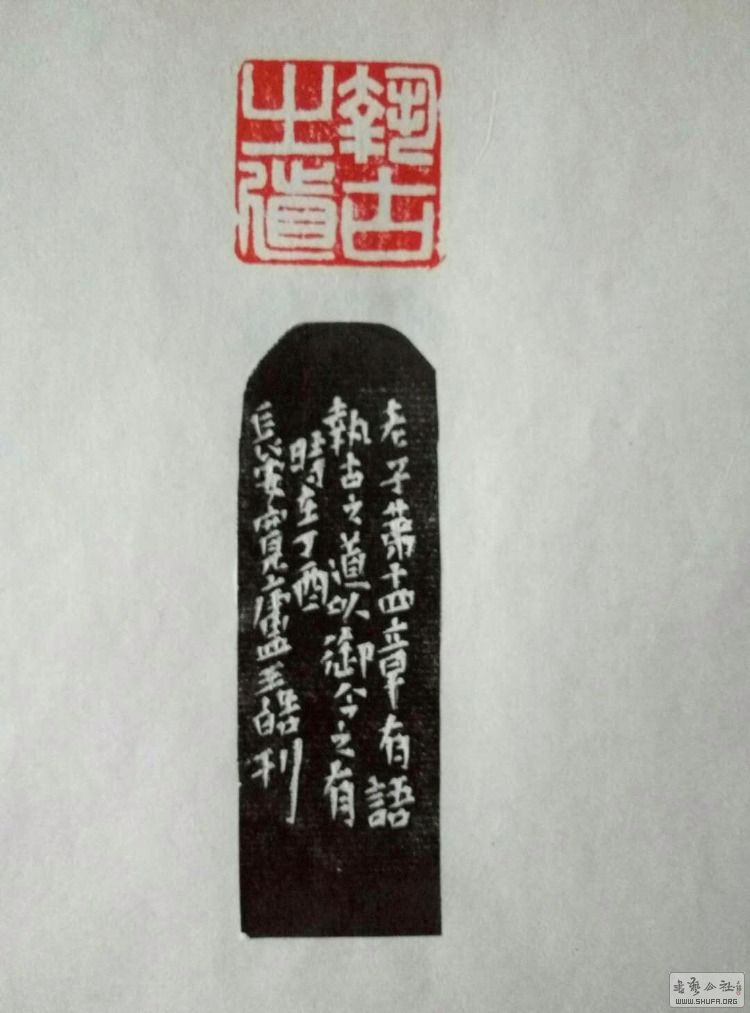 執古
之道
老子第十四章有語
執古之道以御今之有
時在丁酉
長安寬廬王皓刊
書藝公社
WWW.SHUFA.ORG